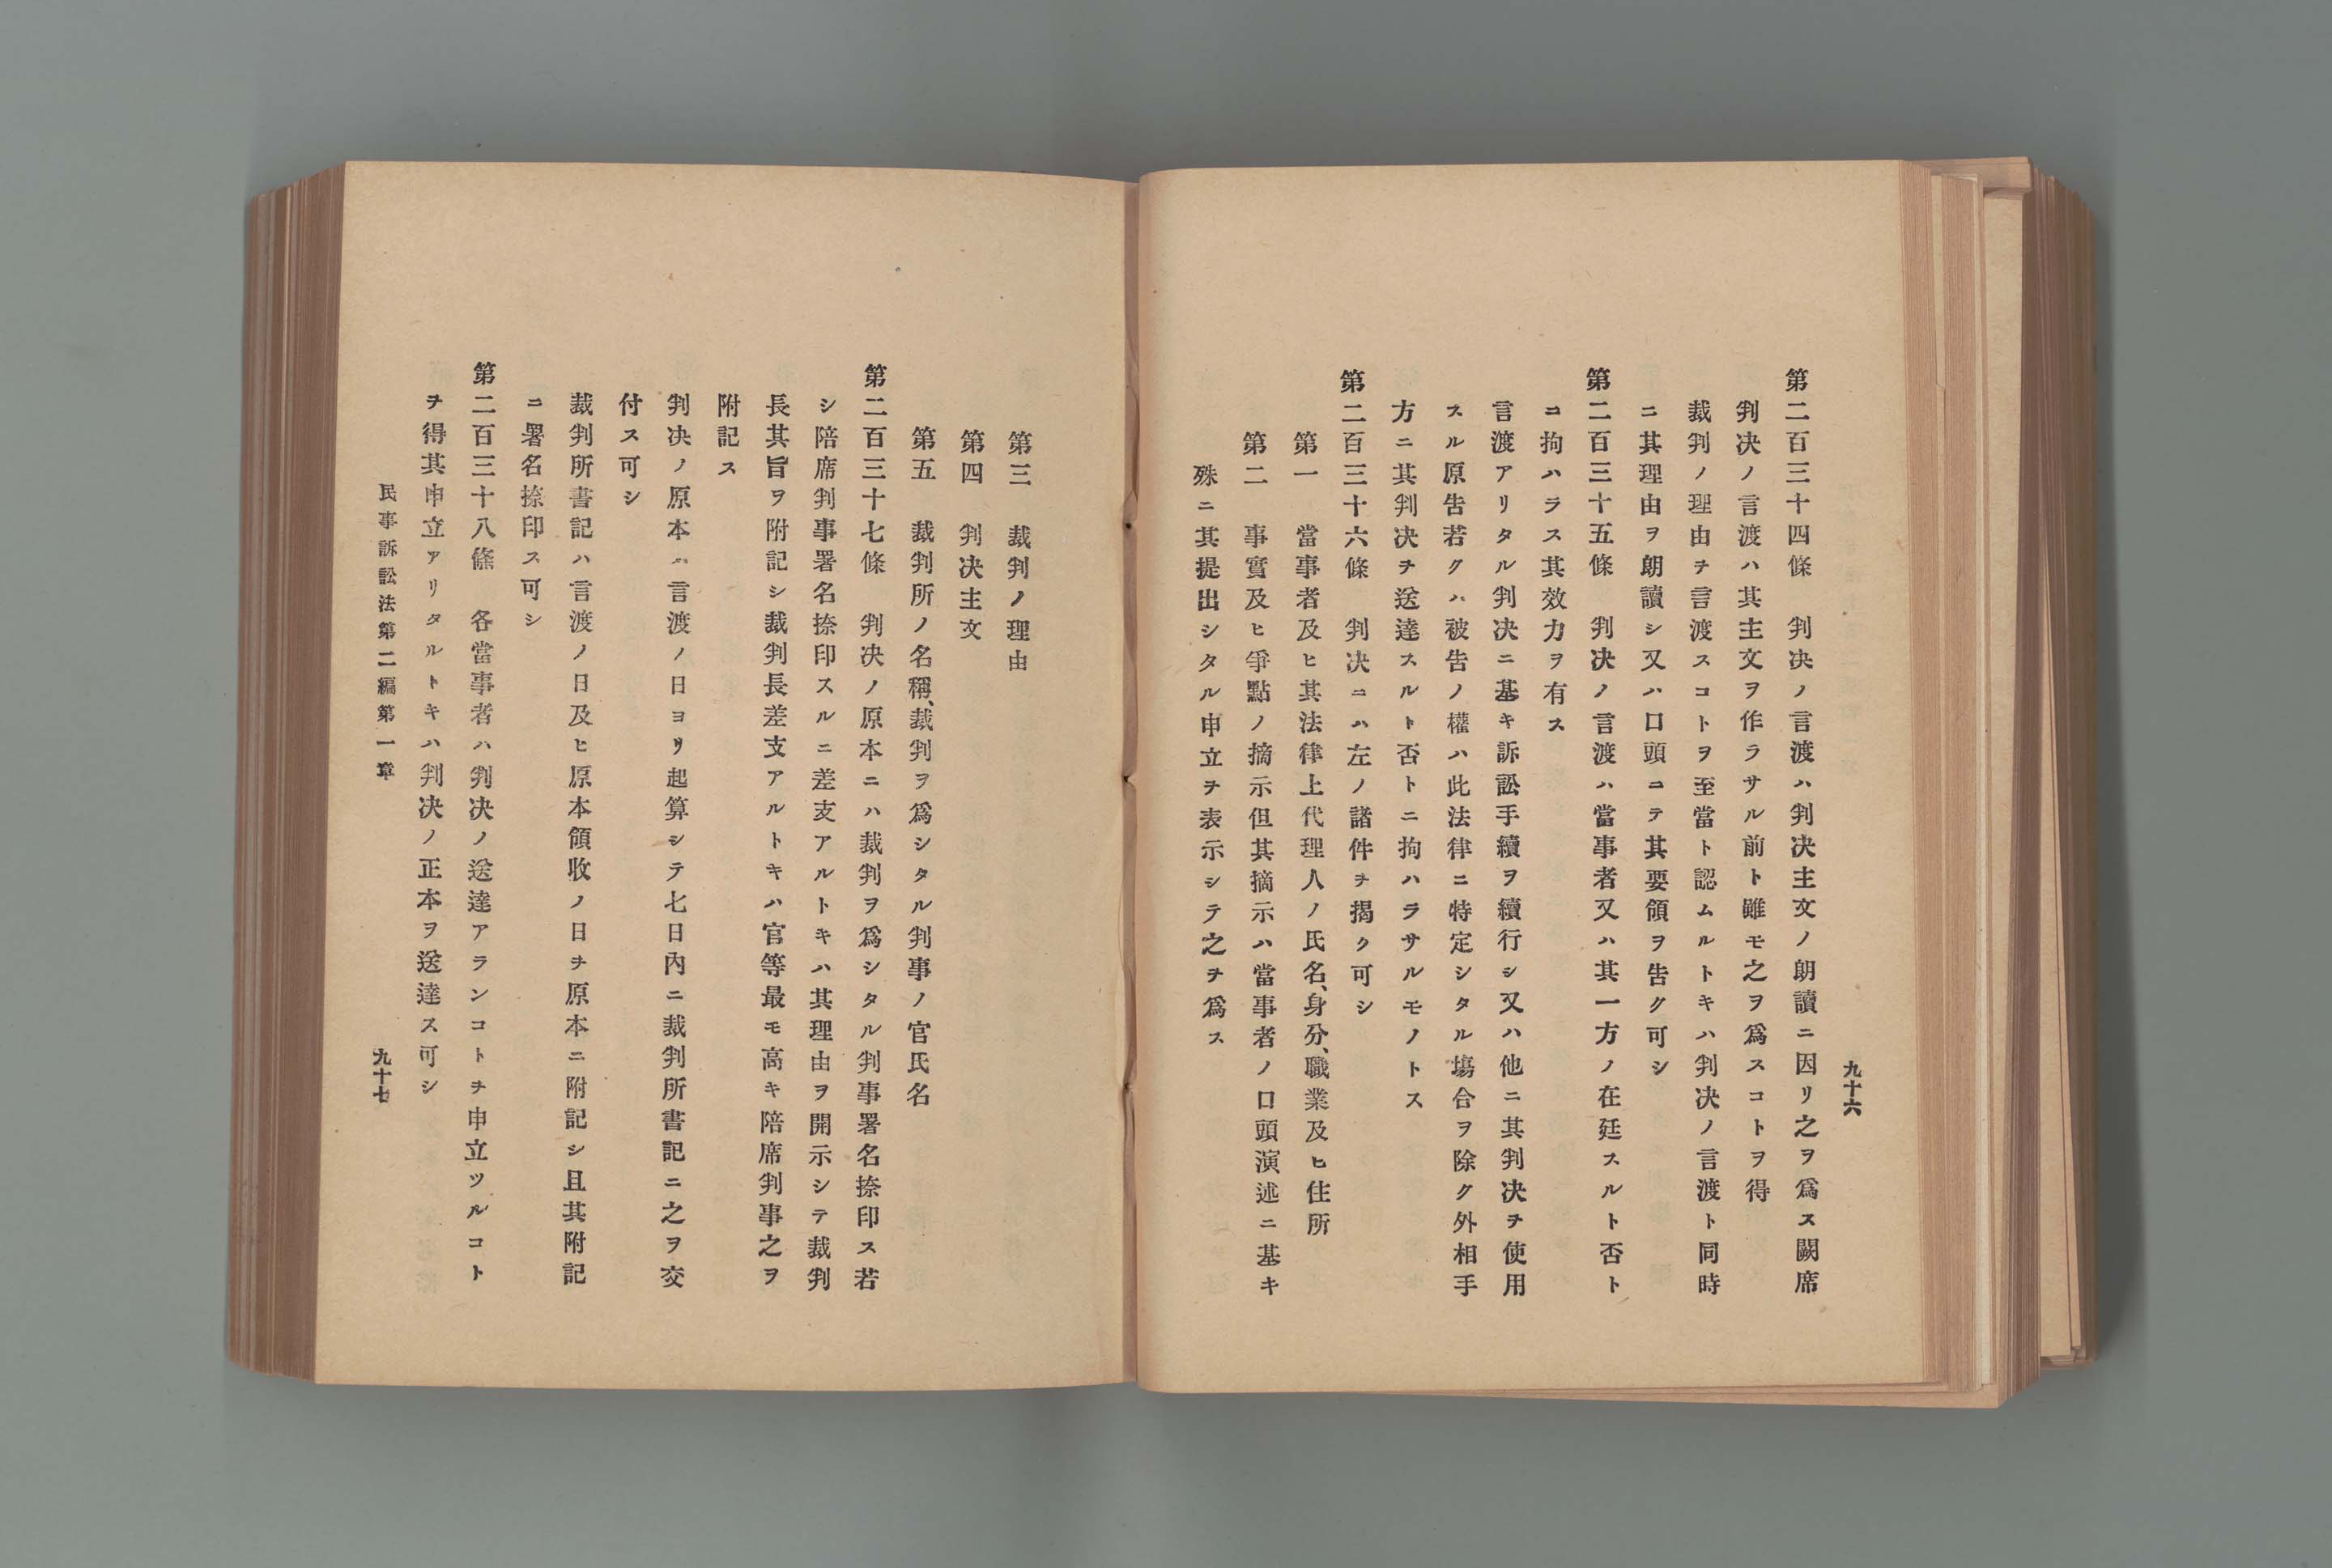 九十六
第二百三十四條　判決ノ言渡ハ判決主文ノ朗讀ニ因リ之ヲ爲ス闕席
判決ノ言渡ハ其主文ヲ作ラサル前ト雖モ之ヲ爲スコトヲ得
裁判ノ理由ヲ言渡スコトヲ至當ト認ムルトキハ判決ノ言渡ト同時
ニ其理由ヲ朗讀シ又ハ口頭ニテ其要領ヲ告ク可シ
第二百三十五條　判決ノ言渡ハ當事者又ハ其一方ノ在廷スルト否ト
ニ拘ハラス其效力ヲ有ス
言渡アリタル判決ニ基キ訴訟手續ヲ續行シ又ハ他ニ其判決ヲ使用
スル原告若クハ被告ノ權ハ此法律ニ特定シタル塲合ヲ除ク外相手
方ニ其判決ヲ送達スルト否トニ拘ハラサルモノトス
第二百三十六條　判決ニハ左ノ諸件ヲ揭ク可シ
第一　當事者及ヒ其法律上代理人ノ氏名、身分、職業及ヒ住所
第二　事實及ヒ爭點ノ摘示但其摘示ハ當事者ノ口頭演述ニ基キ
殊ニ其提出シタル申立ヲ表示シテ之ヲ爲ス
第三　裁判ノ理由
第四　判決主文
第五　裁判所ノ名稱、裁判ヲ爲シタル判事ノ官氏名
第二百三十七條　判決ノ原本ニハ裁判ヲ爲シタル判事署名捺印ス若
シ陪席判事署名捺印スルニ差支アルトキハ其理由ヲ開示シテ裁判
長其旨ヲ附記シ裁判長差支アルトキハ官等最モ高キ陪席判事之ヲ
附記ス
判決ノ原本ハ言渡ノ日ヨリ起算シテ七日內ニ裁判所書記ニ之ヲ交
付ス可シ
裁判所書記ハ言渡ノ日及ヒ原本領收ノ日ヲ原本ニ附記シ且其附記
ニ署名捺印ス可シ
第二百三十八條　各當事者ハ判決ノ送達アランコトヲ申立ツルコト
ヲ得其申立アリタルトキハ判決ノ正本ヲ送達ス可シ
民事訴訟法第二編第一章
九十七